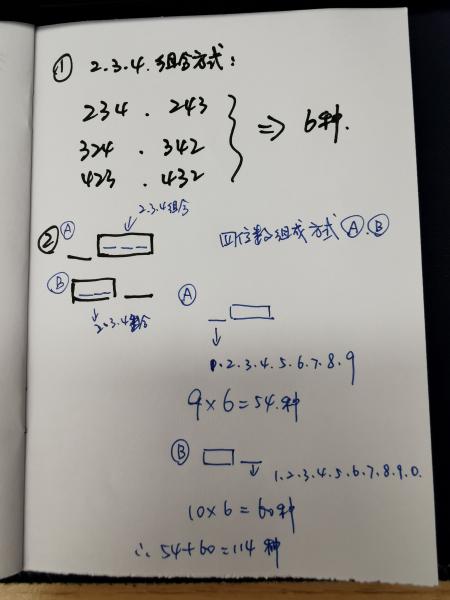 ① 2.3.4.组合方式：
234 . 243
324 . 342
423 . 432
=> 6种.
2.3.4组合
② Ⓐ _ _ _ _
Ⓑ _ _ _ _
2.3.4组合
四位数组成方式 Ⓐ.Ⓑ
Ⓐ
1.2.3.4.5.6.7.8.9
9×6=54.种
Ⓑ
1.2.3.4.5.6.7.8.9.0.
10×6=60种
∴ 54+60=114种